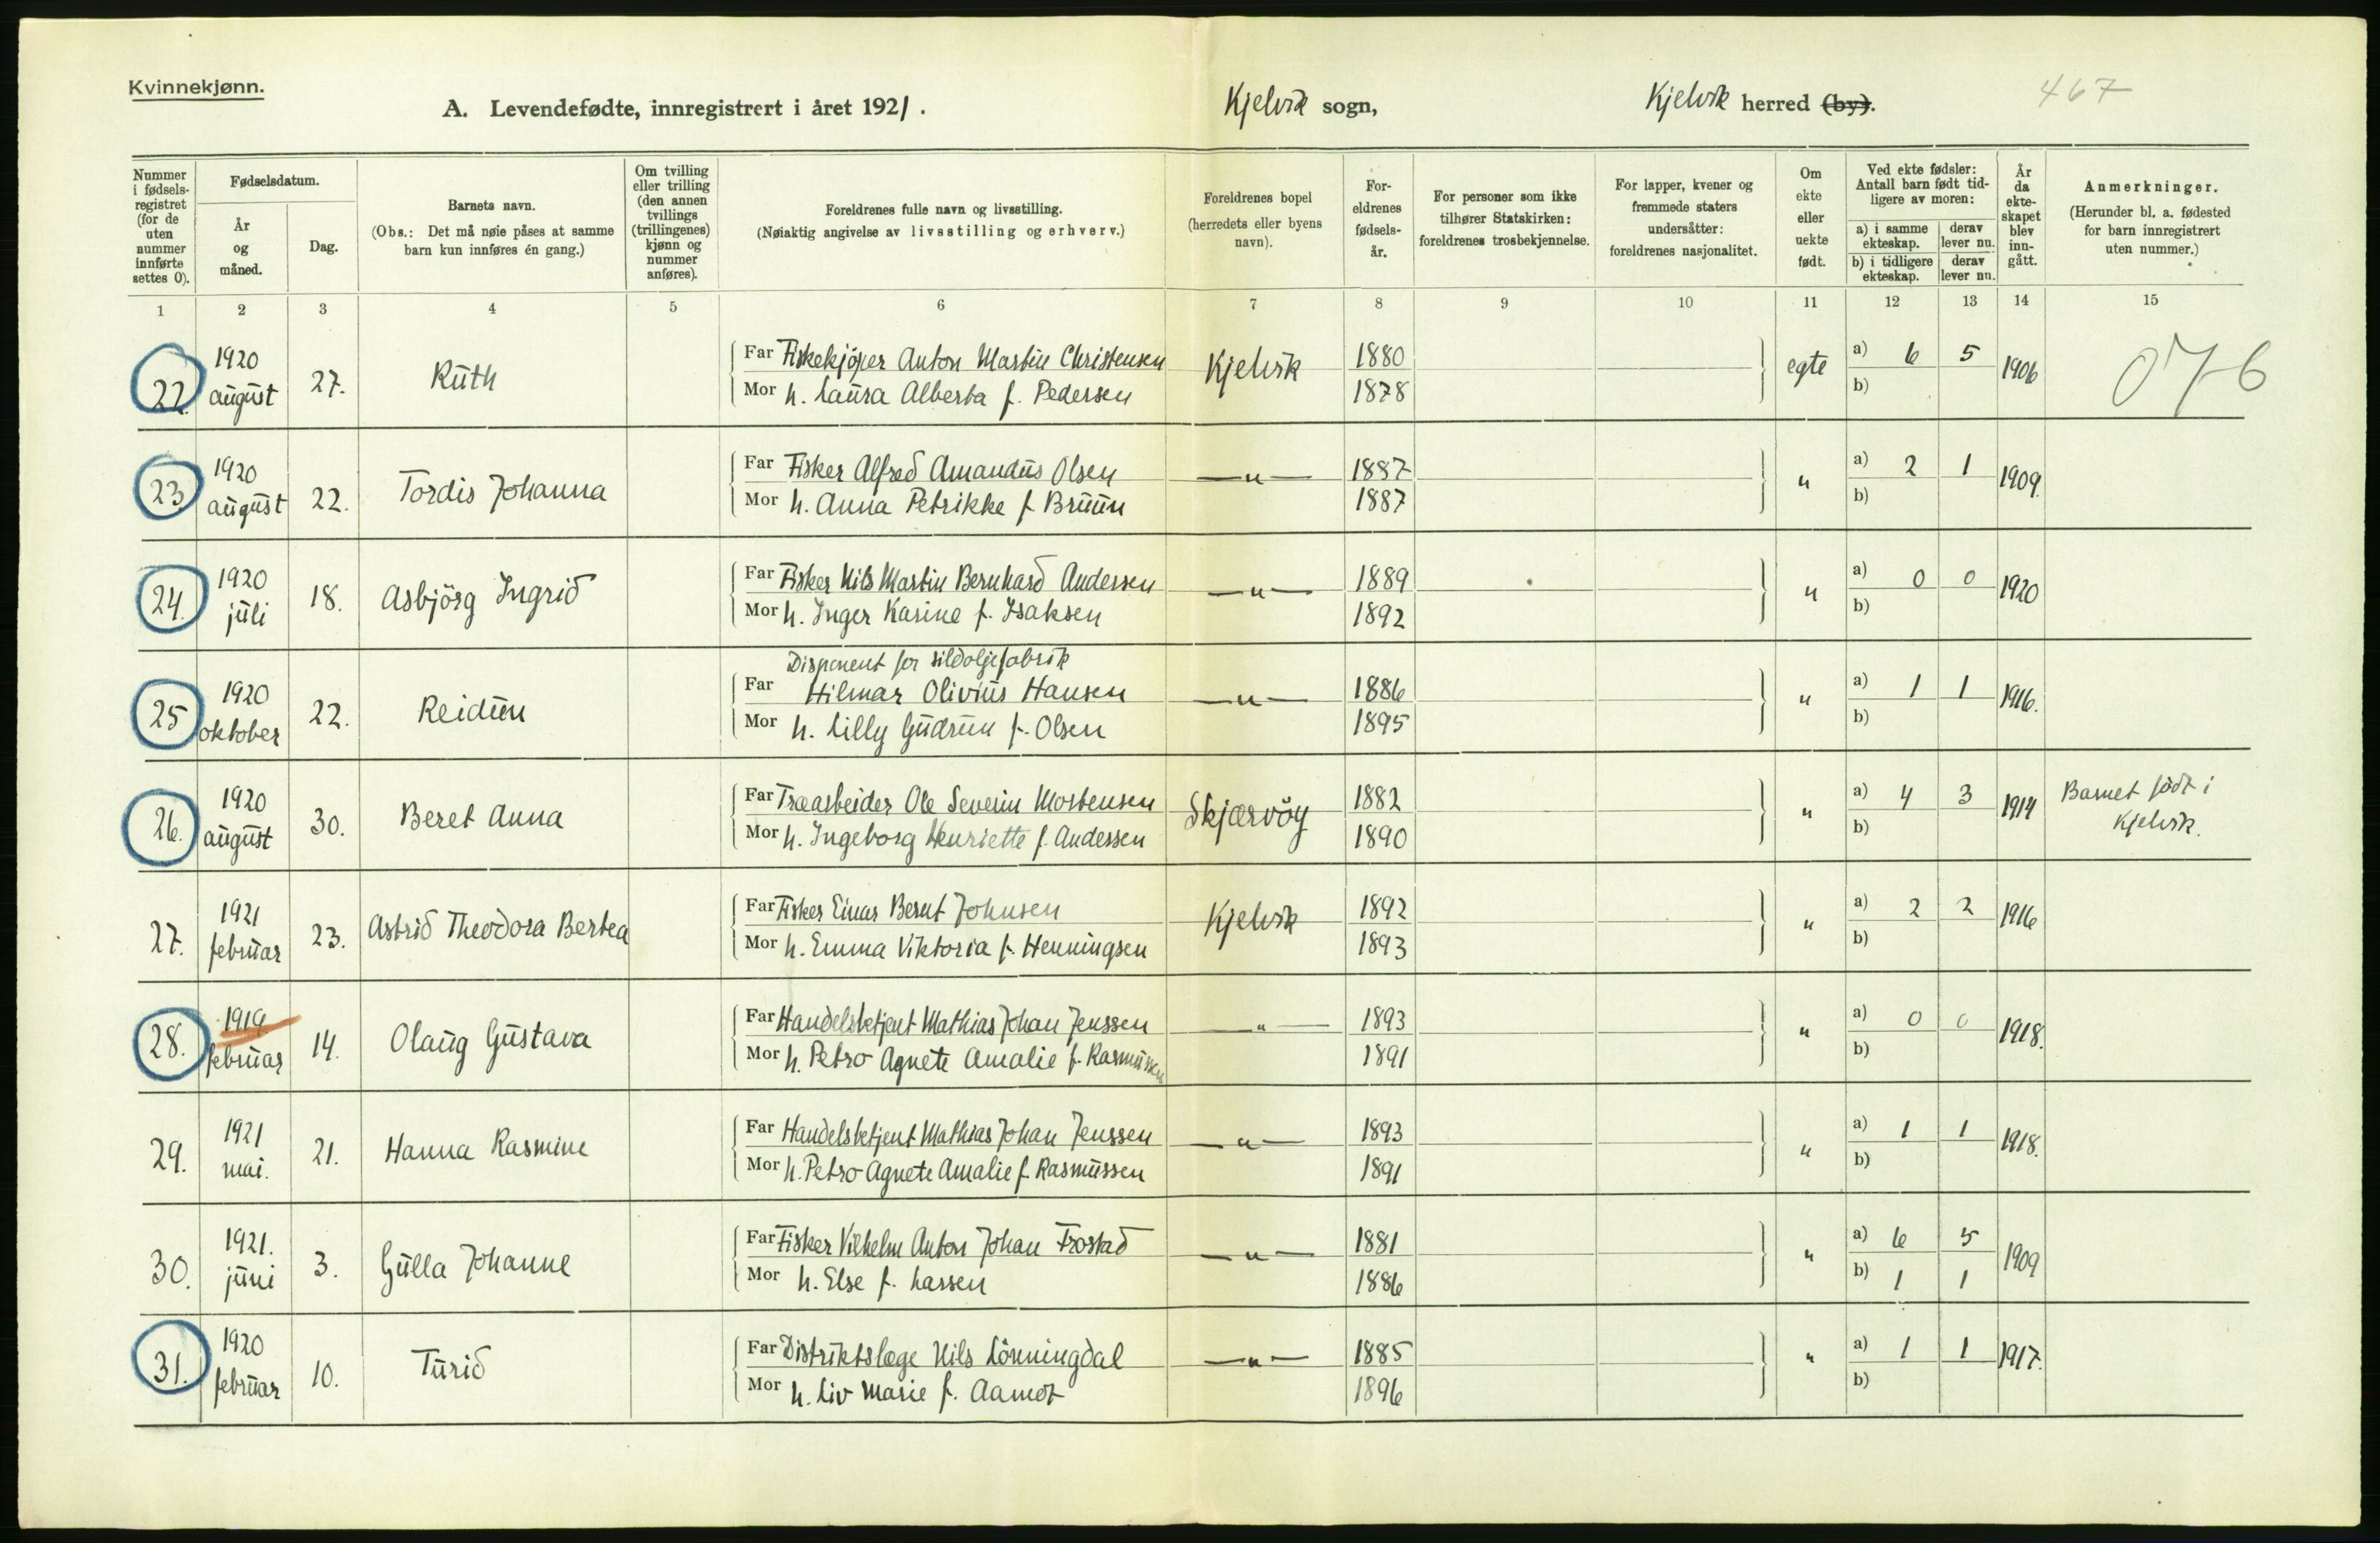 Kvinnekjønn.
A. Levendefødte, innregistrert i året 1921. Kjelvik sogn, Kjelvik herred (by). 467
Nummer i fødsels-registret (for de uten nummer innførte settes 0).
Fødselsdatum.
År og måned.
Dag.
Barnets navn.
(Obs.: Det må nøie påses at samme barn kun innføres én gang.)
Om tvilling eller trilling (den annen tvillings (trillingenes) kjønn og nummer anføres).
Foreldrenes fulle navn og livsstilling.
(Nøiaktig angivelse av livsstilling og erhverv.)
Foreldrenes bopel
(herredets eller byens navn).
For-eldrenes fødsels-år.
For personer som ikke tilhører Statskirken: foreldrenes trosbekjennelse.
For lapper, kvener og fremmede staters undersåtter: foreldrenes nasjonalitet.
Om ekte eller uekte født.
Ved ekte fødsler: Antall barn født tid-ligere av moren:
a) i samme ekteskap.
derav lever nu.
b) i tidligere ekteskap.
derav lever nu.
År da ekte-skapet blev inn-gått.
Anmerkninger.
(Herunder bl. a. fødested for barn innregistrert uten nummer.)
1 2 3 4 5 6 7 8 9 10 11 12 13 14 15
22. 1920 august 27. Ruth
Far Fiskekjöper Anton Martin Christensen Kjelvik 1880 egte a) 6 5 1906 076
Mor h. Laura Alberta f. Pedersen 1878 b)
23. 1920 august 22. Tordis Johanna
Far Fisker Alfred Amandus Olsen —"— 1887 " a) 2 1 1909.
Mor h. Anna Petrikke f. Bruun 1887 b)
24. 1920 juli 18. Asbjörg Ingrid
Far Fisker Nils Martin Bernhard Andersen —"— 1889 " a) 0 0 1920
Mor h. Inger Karine f. Isaksen 1892 b)
25 1920 oktober 22. Reidun
Disponent for sildoljefabrik
Far Hilmar Olivius Hansen —"— 1886 " a) 1 1 1916.
Mor h. Lilly Gudrun f. Olsen 1895 b)
26. 1920 august 30. Beret Anna
Far Træarbeider Ole Severin Mortensen Skjærvöy 1882 " a) 4 3 1914 Barnet födt i Kjelvik.
Mor h. Ingeborg Henriette f. Andersen 1890 b)
27. 1921 februar 23. Astrid Theodora Bertea
Far Fisker Einar Bernt Johnsen Kjelvik 1892 " a) 2 2 1916
Mor h. Emma Viktoria f. Henningsen 1893 b)
28. 1919 februar 14. Olaug Gustava
Far Handelsbetjent Mathias Johan Jenssen —"— 1893 " a) 0 0 1918.
Mor h. Petro Agnete Amalie f. Rasmussen 1891 b)
29. 1921 mai. 21. Hanna Rasmine
Far Handelsbetjent Mathias Johan Jenssen —"— 1893 " a) 1 1 1918.
Mor h. Petro Agnete Amalie f. Rasmussen 1891 b)
30. 1921. juni 3. Gulla Johanne
Far Fisker Vilhelm Anton Johan Frostad —"— 1881 " a) 6 5 1909
Mor h. Else f. Larsen 1886 b) 1 1
31. 1920 februar 10. Turid
Far Distriktslæge Nils Lönningdal —"— 1885 " a) 1 1 1917.
Mor h. Liv Marie f. Aamot 1896 b)